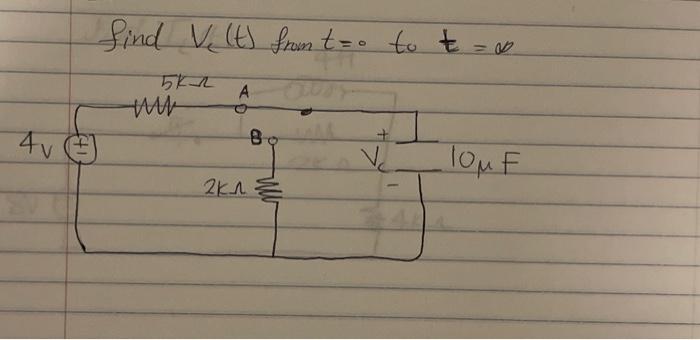 find Vc(t) from t=0 to t=∞
5KΩ
A
4v
±
B
+
Vc
-
10μF
2KΩ